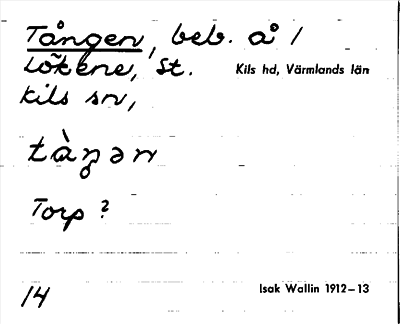 Tången, beb. å 1
Lökene, St.
Kils hd, Värmlands län
Kils sn,
tàŋən
Torp?
14
Isak Wallin 1912–13